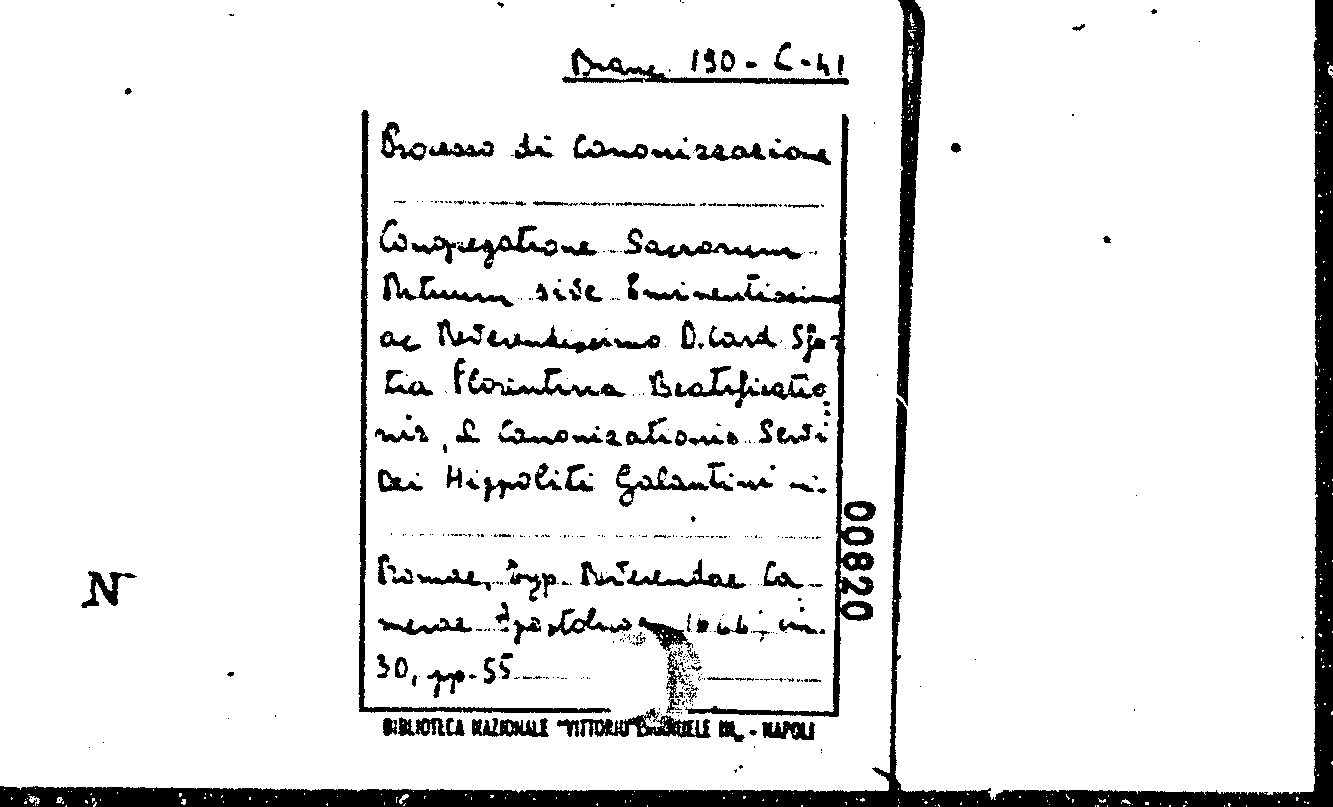 Branc. 190 - C - 41
Processo di Canonizzazione
Congregatione Sacrorum
Rituum sive Eminentissimo
ac Reverendissimo D. Card Sfo=
tia Florentina Beatificatio
nis, & Canonizationis Servi
Dei Hippoliti Galantini
00820
N
Romae, Typ. Reverendae Ca-
merae Apostolicae 1666, in
30, pp. 55
BIBLIOTECA NAZIONALE "VITTORIO EMANUELE III" - NAPOLI